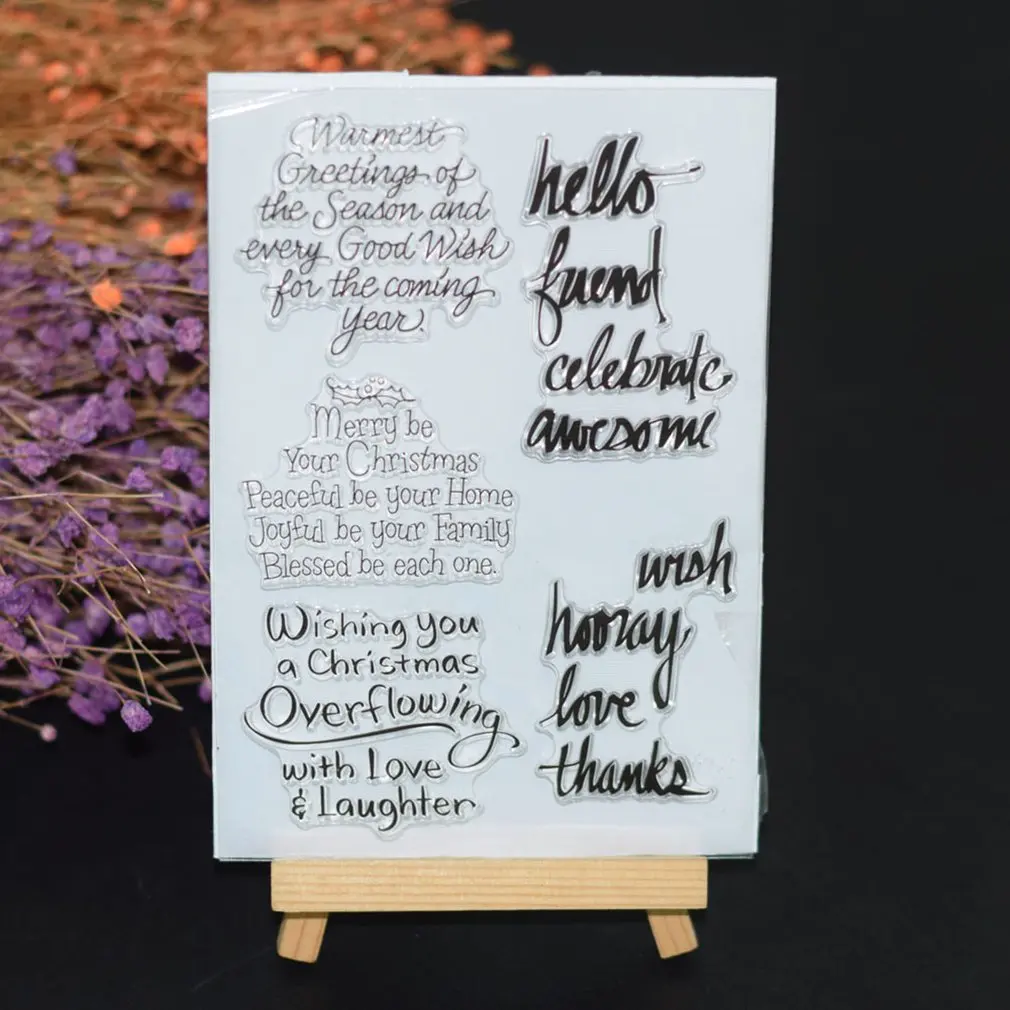 Warmest
Greetings of
the Season and
every Good Wish
for the coming
year.
Merry be
Your Christmas
Peaceful be your Home
Joyful be your Family
Blessed be each one.
Wishing you
a Christmas
Overflowing
with Love
& Laughter
hello
friend
celebrate
awesome
wish
hooray
love
thanks